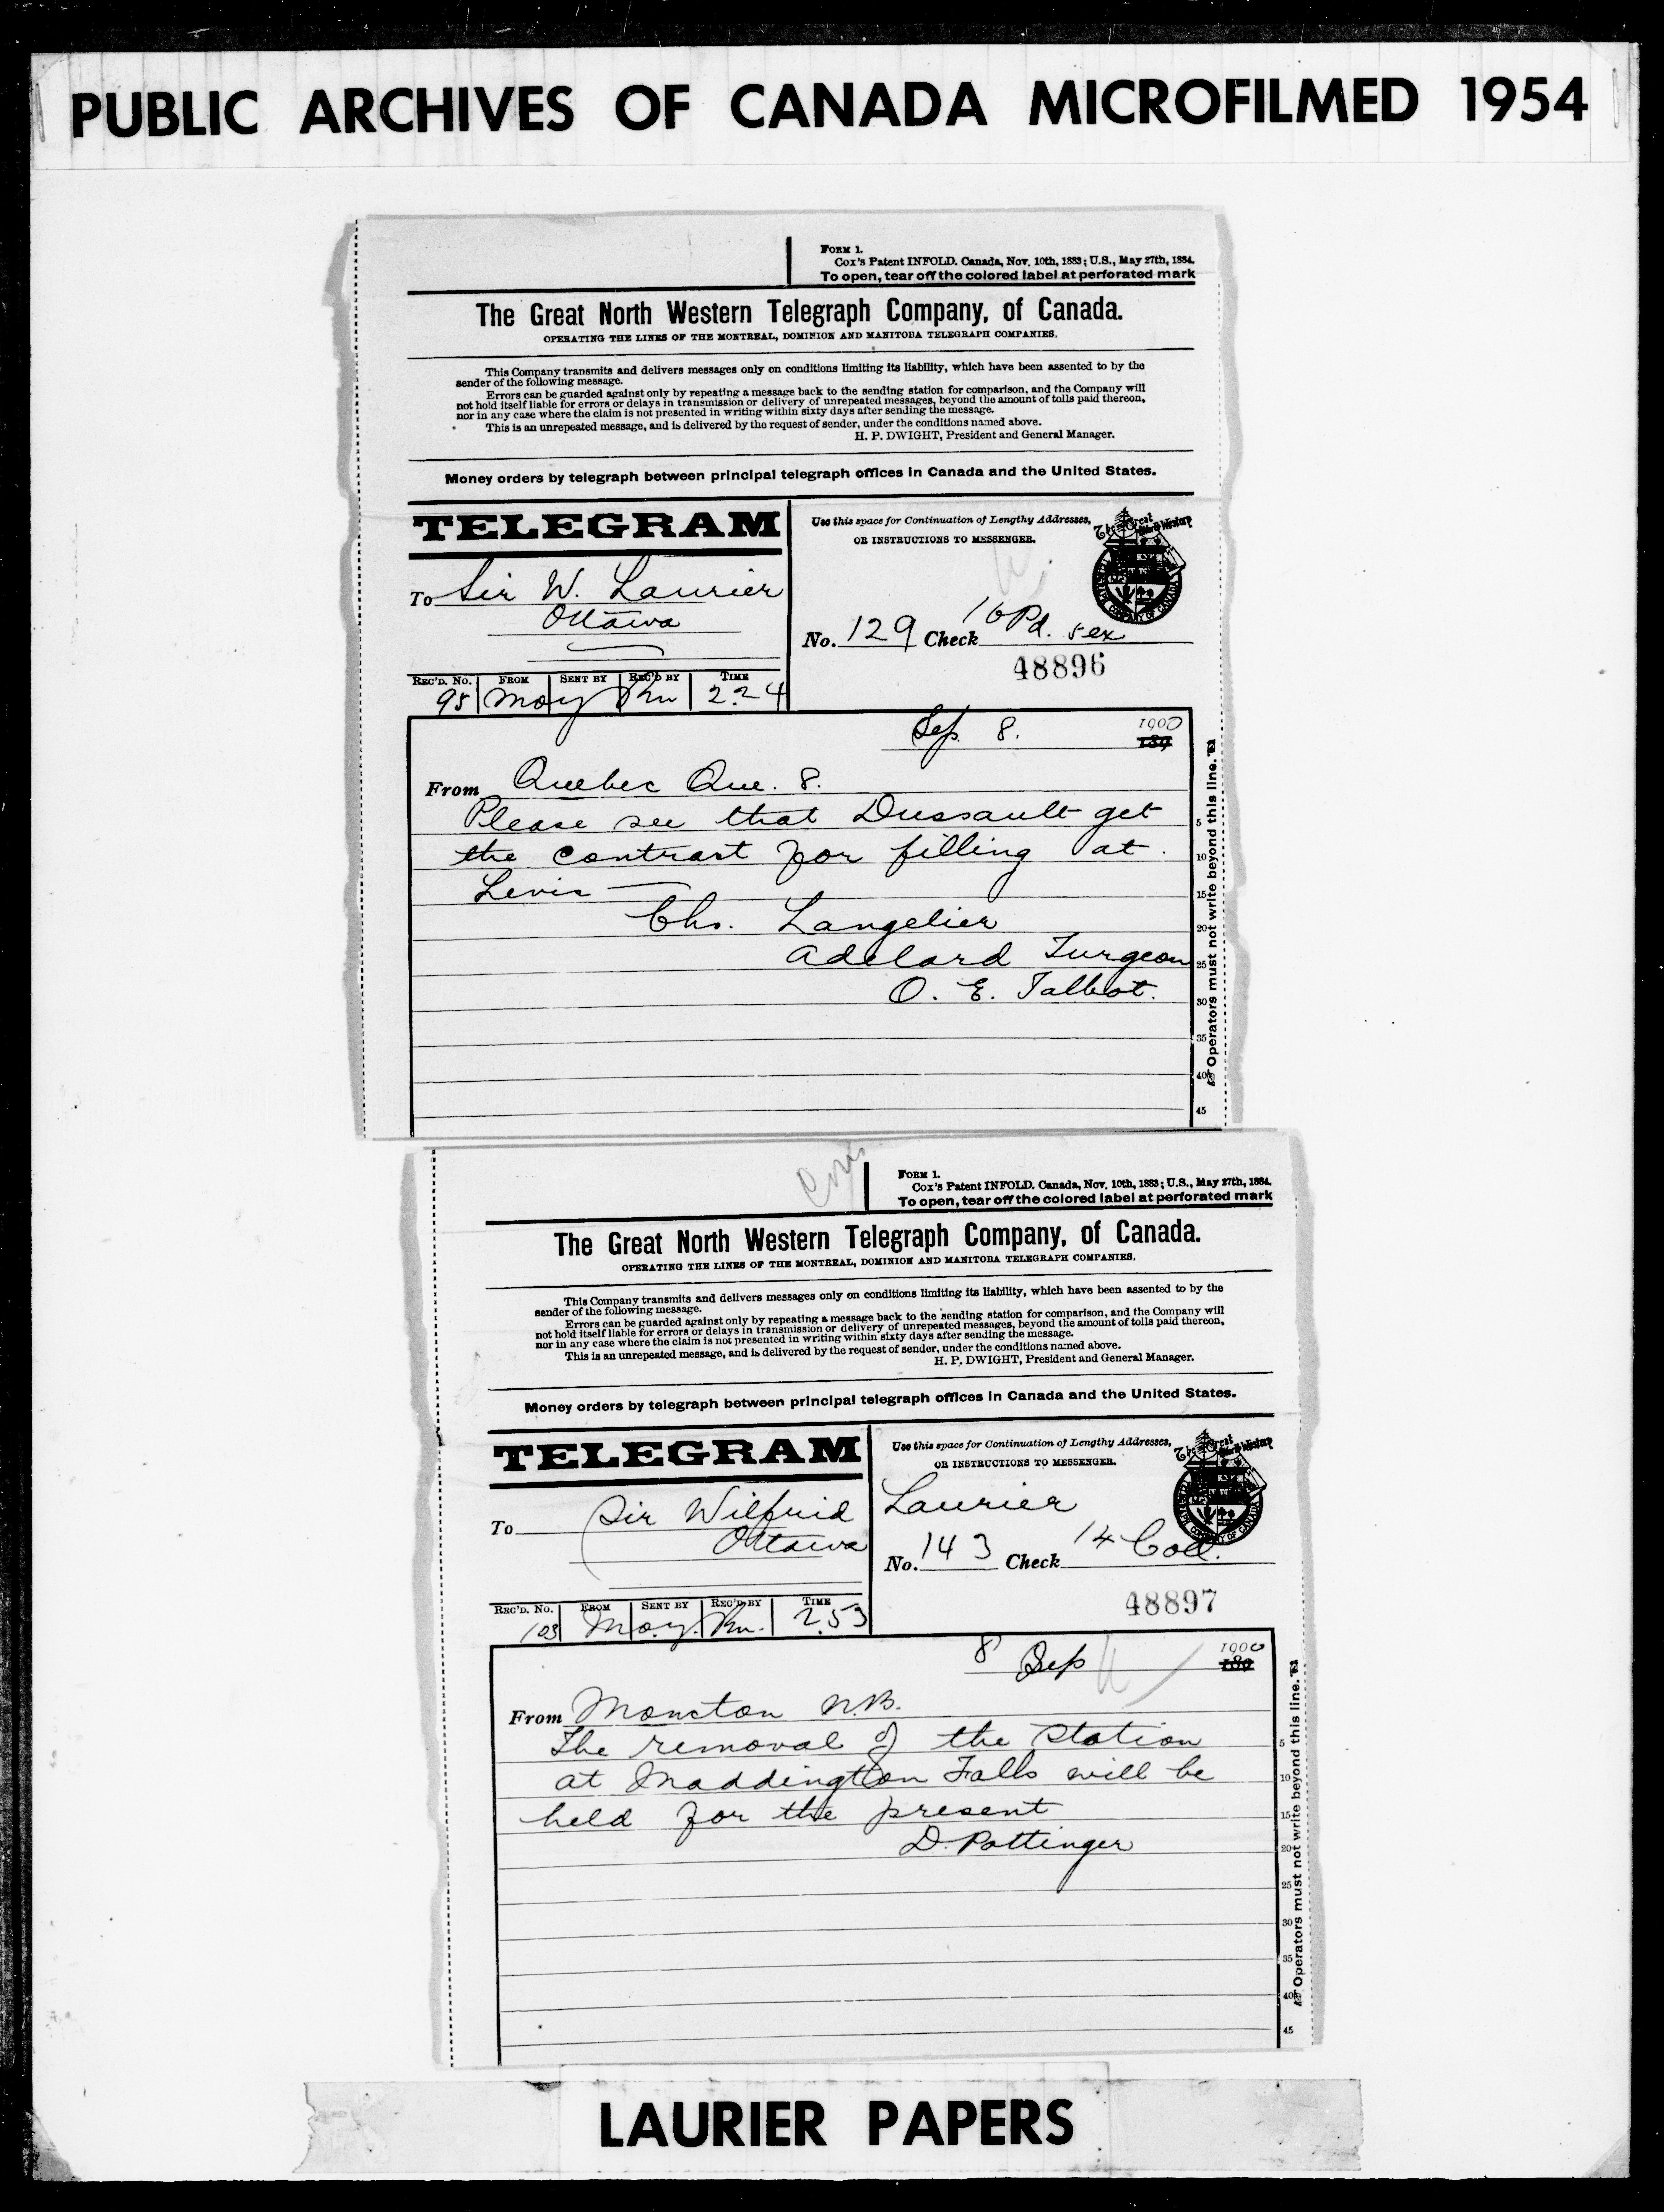 PUBLIC ARCHIVES OF CANADA MICROFILMED 1954
FORM 1.
Cox's Patent INFOLD. Canada, Nov. 10th, 1883; U.S., May 27th, 1884.
To open, tear off the colored label at perforated mark
The Great North Western Telegraph Company, of Canada.
OPERATING THE LINES OF THE MONTREAL, DOMINION AND MANITOBA TELEGRAPH COMPANIES.
This Company transmits and delivers messages only on conditions limiting its liability, which have been assented to by the
sender of the following message.
Errors can be guarded against only by repeating a message back to the sending station for comparison, and the Company will
not hold itself liable for errors or delays in transmission or delivery of unrepeated messages, beyond the amount of tolls paid thereon,
nor in any case where the claim is not presented in writing within sixty days after sending the message.
This is an unrepeated message, and is delivered by the request of sender, under the conditions named above.
H. P. DWIGHT, President and General Manager.
Money orders by telegraph between principal telegraph offices in Canada and the United States.
TELEGRAM
Use this space for Continuation of Lengthy Addresses,
OR INSTRUCTIONS TO MESSENGER.
The Great North Western
TELEGRAPH COMPANY OF CANADA
To Sir W. Laurier
Ottawa
No. 129 Check 16 Pd. 5 ex
48896
REC'D. NO. FROM SENT BY REC'D BY TIME
95 Moy Rn 2.24
Sep. 8. 1900
189
From Quebec Que. 8.
Please see that Dussault get
the contract for filling at
Levis —
Chs. Langelier
Adelard Turgeon
O. E. Talbot.
5
10
15
20
25
30
35
40
45
Operators must not write beyond this line.
FORM 1.
Cox's Patent INFOLD. Canada, Nov. 10th, 1883; U.S., May 27th, 1884.
To open, tear off the colored label at perforated mark
The Great North Western Telegraph Company, of Canada.
OPERATING THE LINES OF THE MONTREAL, DOMINION AND MANITOBA TELEGRAPH COMPANIES.
This Company transmits and delivers messages only on conditions limiting its liability, which have been assented to by the
sender of the following message.
Errors can be guarded against only by repeating a message back to the sending station for comparison, and the Company will
not hold itself liable for errors or delays in transmission or delivery of unrepeated messages, beyond the amount of tolls paid thereon,
nor in any case where the claim is not presented in writing within sixty days after sending the message.
This is an unrepeated message, and is delivered by the request of sender, under the conditions named above.
H. P. DWIGHT, President and General Manager.
Money orders by telegraph between principal telegraph offices in Canada and the United States.
TELEGRAM
Use this space for Continuation of Lengthy Addresses,
OR INSTRUCTIONS TO MESSENGER.
The Great North Western
TELEGRAPH COMPANY OF CANADA
To Sir Wilfrid Laurier
Ottawa
No. 143 Check 14 Coll.
48897
REC'D. NO. FROM SENT BY REC'D BY TIME
103 Mo.y. Rn. 2.53
8 Sep 1900
189
From Moncton N.B.
The removal of the station
at Maddington Falls will be
held for the present
D. Pottinger
5
10
15
20
25
30
35
40
45
Operators must not write beyond this line.
LAURIER PAPERS